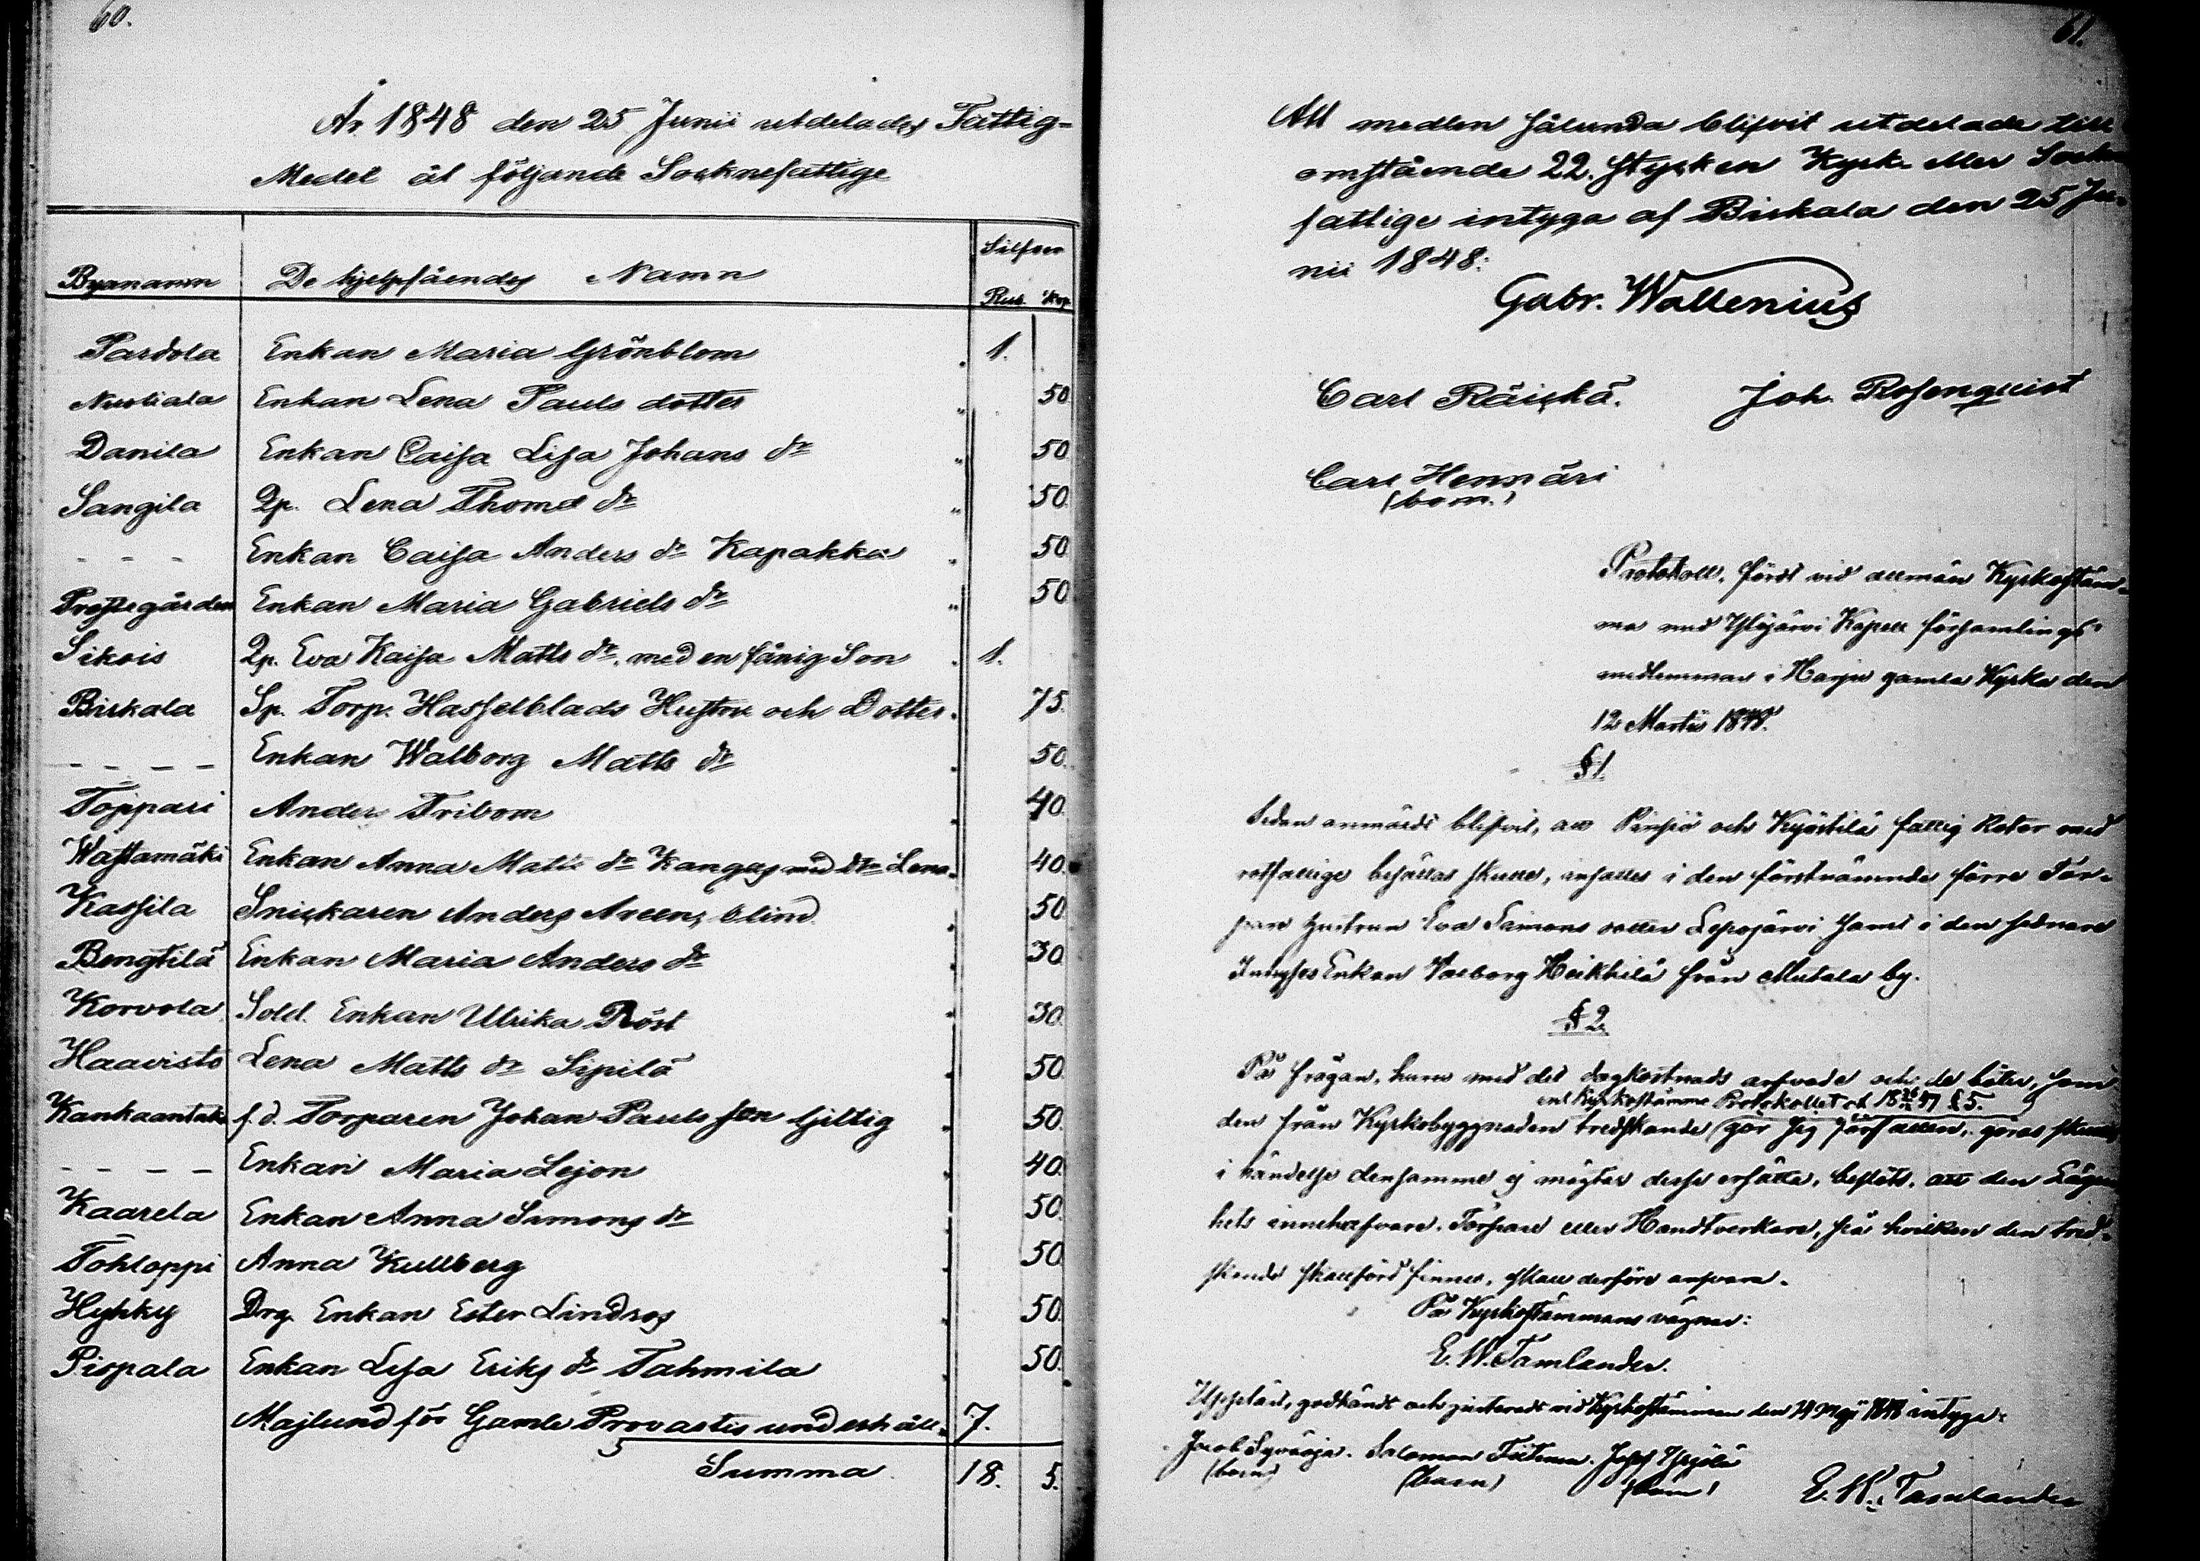 60.
År 1848 den 25 Junii utdelades Fattig-
Medel åt följande Socknefattige
Byanamn De hjelpfåendes Namn Silfver
Rub. Kop.
Pardola Enkan Maria Grönblom 1.
Enkan Lena Pauls dotter 50.
Danila Enkan Caisa Lisa Johans dr 50
Sangila Qp. Lena Thomæ dr 50.
- - - Enkan Caisa Anders dr Kapakka 50
Prestegården Enkan Maria Gabriels dr 50
Sikois Qp. Eva Kaisa Matts dr. med en fånig Son 1.
Birkala Sp. Torp. Hasselblads Hustru och Dotter. 75.
- - - - Enkan Walborg Matts dr 50.
Toppari Anders Tribom 40.
Wastamäki Enkan Anna Matts dr Kangas med dtr Lena. 40.
Kassila Snickaren Anders Areen, blind. 50.
Bengtilä Enkan Maria Anders dr 30.
Korvola Sold. Enkan Ulrika Röst 30.
Haavisto Lena Matts dr Sipilä 50.
Kankaantaka f.d. Torparen Johan Pauls son Giltig 50.
- - - - Enkan Maria Lejon 40.
Kaarela Enkan Anna Simons dr 50.
Tohloppi Anna Kullberg 50.
Hyhky Drg. Enkan Ester Lindros 50.
Pispala Enkan Lisa Eriks dr Tahmila 50.
Majlund för Gamle Provastis underhåll. 7.
Summa 18. 5.
61.
Att medlen sålunda blifvit utdelade till
omstående 22. stycken Kyrk- eller Sockne
fattige intyga af Birkala den 25 Ju-
nii 1848:
Gabr. Wallenius
Carl Räickä. Joh. Rosenquist
Carl Hennäri
(bom.)
Protokoll, fördt vid allmän Kyrkostäm-
ma med Ylöjärvi Kapell församlings
medlemmar i Harju gamla Kyrka den
12 Martii 1848.
§ 1.
Sedan anmärdt blifvit, att Pinsiö och Kyöstilä fattig Roter med
rotfattige besättas skulle, insattes i den förstnämnde förre Tor-
pare hustrun Eva Simons dotter Lepojärvi samt i den sednare
Inhyses Enkan Valborg Heikkilä från Mutala by.
§ 2.
På frågan, huru med det dagkostnads arfvode och de böter, som
enl Kyrkostämme Protokollet d. 18 47 § 5.
den från Kyrkobyggnaden tredskande gör sig förfallen, göras skulle
i händelse densamme ej mägtar desse ersätta, beslöts, att den Lägen
hets innehafvare, Torpare eller Handtverkare, på hvilken den tred-
skande skattförd finnes, skall derföre ansvara.
På Kyrkostämmans vägnar:
E. W. Tamlander.
Uppläst, godkändt och justeradt vid Kyrkostämman den 14 Maji 1848 intyga:
Jacob Salomon Josef
(bom) (bom) (bom)
E. W. Tamlander